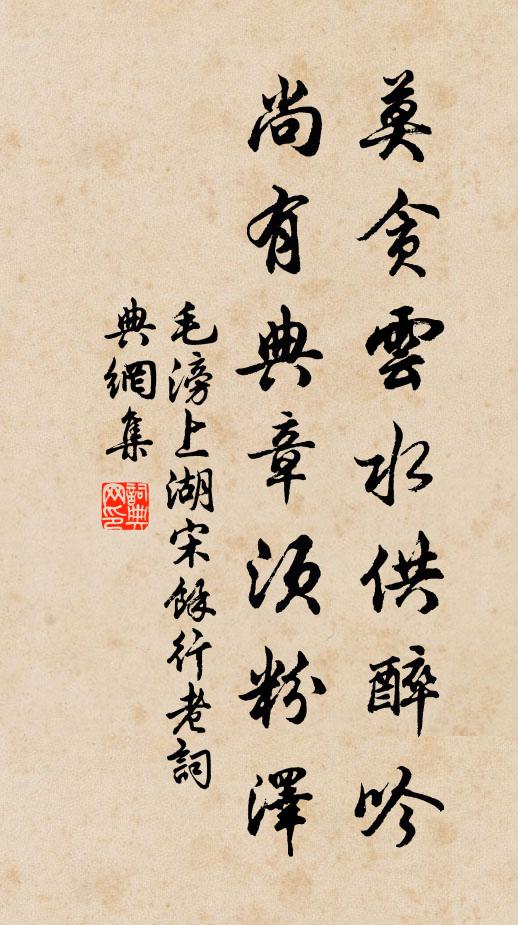 莫貪雲水供醉吟
尚有典章須粉澤
毛滂上湖宋餘行老詞
典網集
詞典
网印